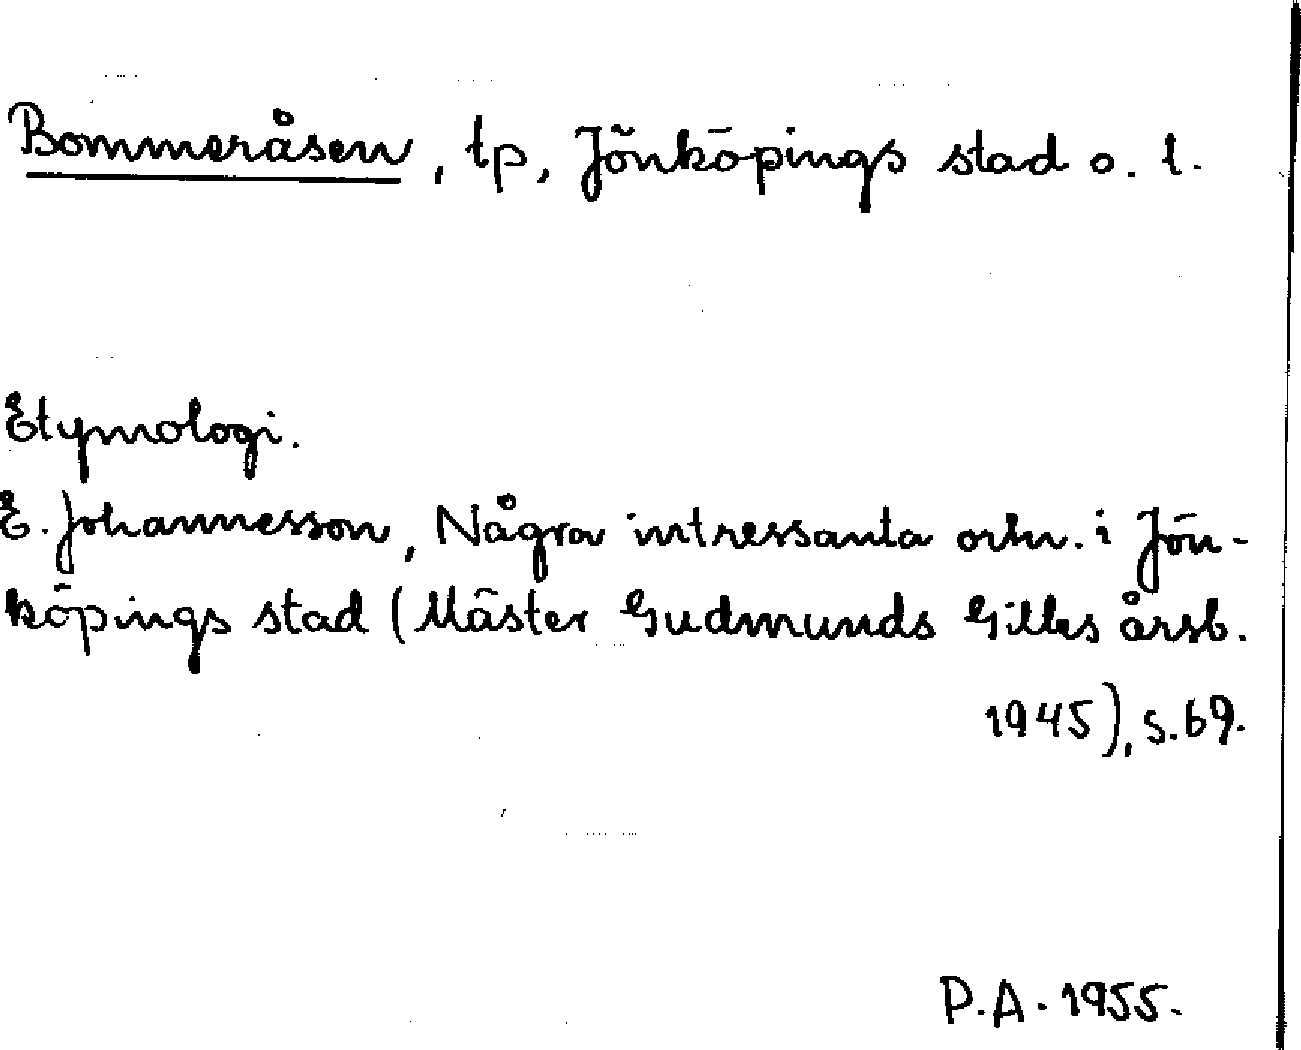 Bommeråsen, tp, Jönköpings stad o. l.
Etymologi.
E. Johannesson, Några intressanta ortn. i Jön-
köpings stad (Mäster Gudmunds Gilles årsb.
1945), s. 69.
P.A. 1955.